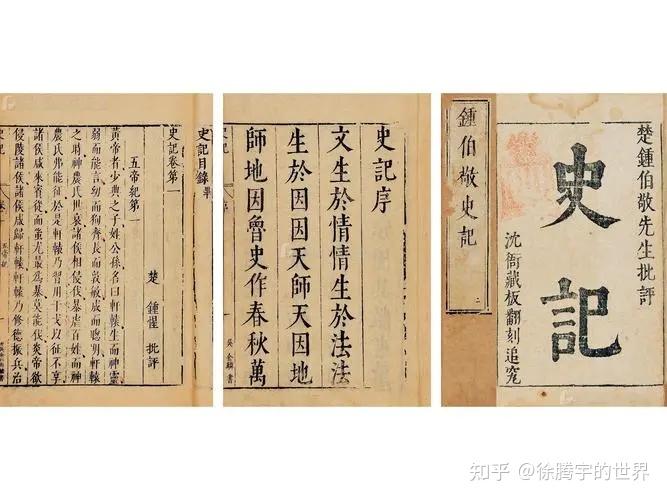 楚鍾伯敬先生批評
史記
沈衙藏板翻刻追究
鍾伯敬史記
二
史記序
文生於情情生於法法
生於因因天師天因地
師地因魯史作春秋萬
史記目錄畢
史記卷第一
楚 鍾惺 批評
五帝紀第一
黃帝者少典之子姓公孫名曰軒轅生而神靈
弱而能言幼而狥齊長而敦敏成而聰明軒轅
之時神農氏世衰諸侯相侵伐暴虐百姓而神
農氏弗能征於是軒轅乃習用干戈以征不享
諸侯咸來賓從而蚩尤最爲暴莫能伐炎帝欲
侵陵諸侯諸侯咸歸軒轅軒轅乃修德振兵治
知乎 @徐腾宇的世界